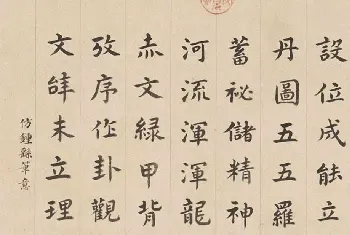 設位成能立
丹圖五五羅
蓄祕儲精神
河流渾渾龍
赤文綠甲背
攷序作卦觀
文皣未立理
仿鍾繇筆意